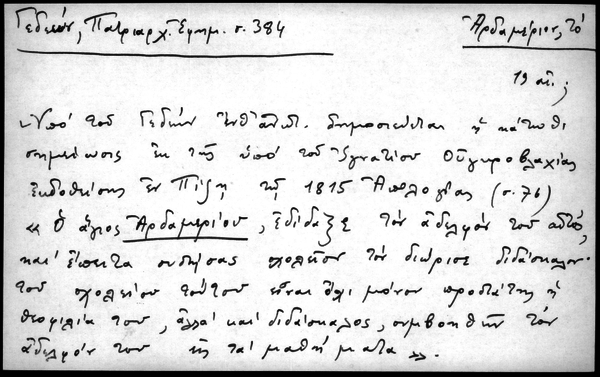 Γεδεών, Πατριαρχ. Ἐφημ. σ. 384
Ἀρδαμέριον, τό
19 αἰ. ;
Ὑπό τοῦ Γεδεών ἐνθ' ἀνωτ. δημοσιεύεται ἡ κάτωθι
σημείωσις ἐκ τῆς ὑπό τοῦ Ἰγνατίου Οὐγγροβλαχίας
ἐκδοθείσης ἐν Πίζῃ τῷ 1815 Ἀπολογίας (σ. 76)
« Ὁ ἅγιος Ἀρδαμερίου, ἐδίδαξε τόν ἀδελφόν του αὐτός,
καί ἔπειτα συστήσας σχολεῖον τόν διώρισε διδάσκαλον·
τοῦ σχολείου τούτου εἶναι ὄχι μόνον προστάτης ἡ
θεοφιλία του, ἀλλά καί διδάσκαλος, συμβοηθῶν τόν
ἀδελφόν του εἰς τά μαθήματα ».